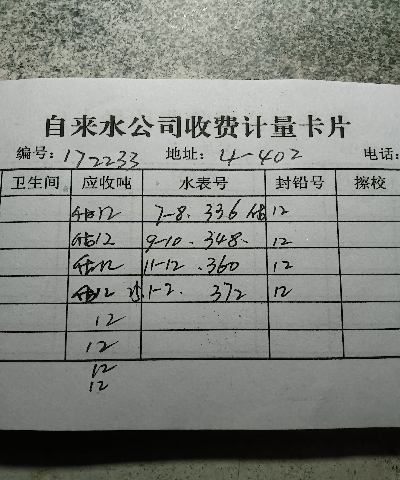 自来水公司收费计量卡片
编号: 172233 地址: 4-402 电话:
卫生间 应收吨 水表号 封铅号 擦校
估12 7-8. 336 估 12
估12 9-10. 348. 12
估12 11-12. 360 12
估12 1-2. 372 12
12
12
12
12